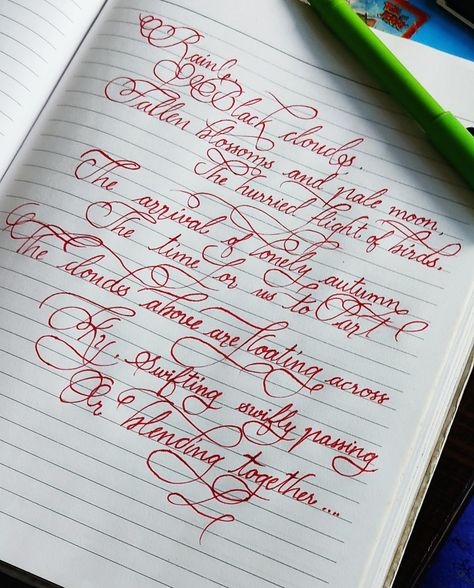 Rain
Black clouds..
Fallen blossoms and pale moon,
The hurried flight of birds.
The arrival of lonely autumn
The time for us to Part
The clouds above are floating across
Sky, swifting swifly passing
Or blending together....